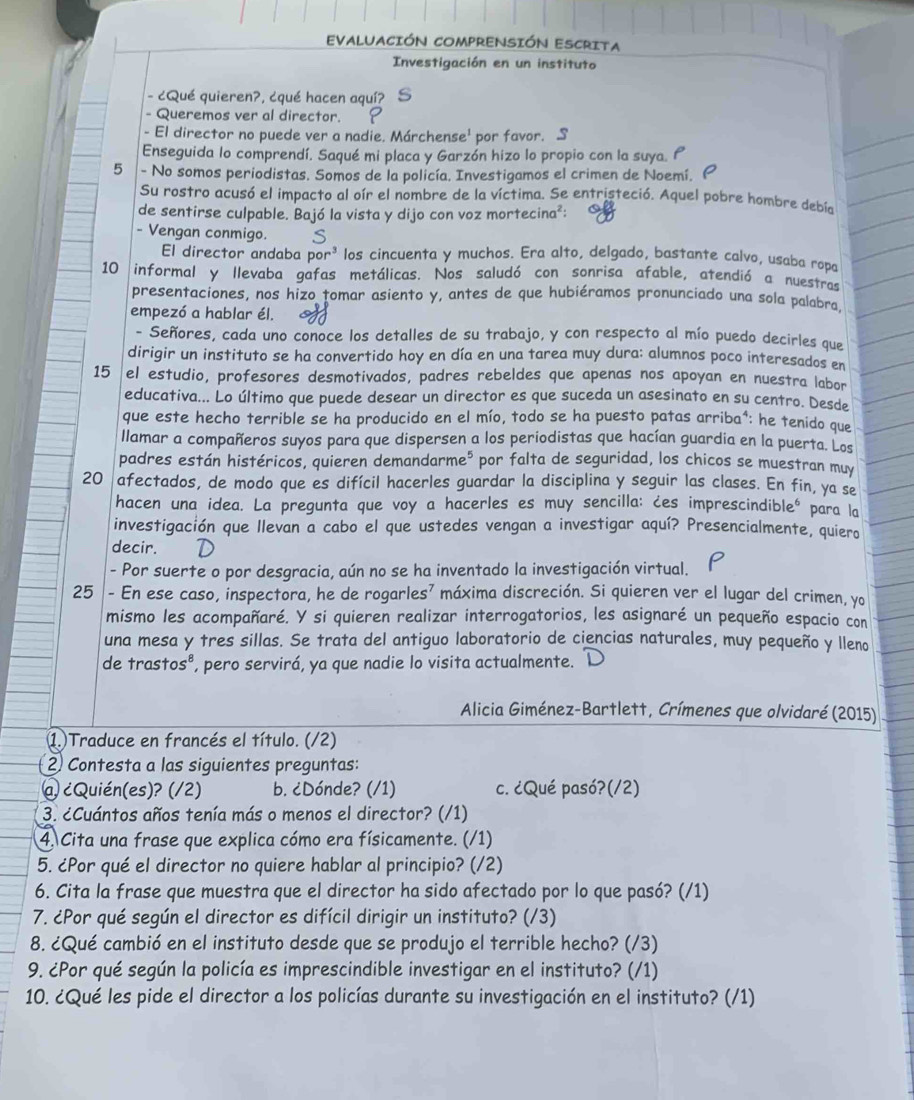 EVALUACIÓN COMPRENSIÓN ESCRITA
Investigación en un instituto
- ¿Qué quieren?, ¿qué hacen aquí? S
- Queremos ver al director. P
- El director no puede ver a nadie. Márchense¹ por favor. S
Enseguida lo comprendí. Saqué mi placa y Garzón hizo lo propio con la suya. P
5 - No somos periodistas. Somos de la policía. Investigamos el crimen de Noemí. P
Su rostro acusó el impacto al oír el nombre de la víctima. Se entristeció. Aquel pobre hombre debía
de sentirse culpable. Bajó la vista y dijo con voz mortecina²: off
- Vengan conmigo. S
El director andaba por³ los cincuenta y muchos. Era alto, delgado, bastante calvo, usaba ropa
10 informal y llevaba gafas metálicas. Nos saludó con sonrisa afable, atendió a nuestras
presentaciones, nos hizo tomar asiento y, antes de que hubiéramos pronunciado una sola palabra,
empezó a hablar él. off
- Señores, cada uno conoce los detalles de su trabajo, y con respecto al mío puedo decirles que
dirigir un instituto se ha convertido hoy en día en una tarea muy dura: alumnos poco interesados en
15 el estudio, profesores desmotivados, padres rebeldes que apenas nos apoyan en nuestra labor
educativa... Lo último que puede desear un director es que suceda un asesinato en su centro. Desde
que este hecho terrible se ha producido en el mío, todo se ha puesto patas arriba⁴: he tenido que
llamar a compañeros suyos para que dispersen a los periodistas que hacían guardia en la puerta. Los
padres están histéricos, quieren demandarme⁵ por falta de seguridad, los chicos se muestran muy
20 afectados, de modo que es difícil hacerles guardar la disciplina y seguir las clases. En fin, ya se
hacen una idea. La pregunta que voy a hacerles es muy sencilla: ¿es imprescindible⁶ para la
investigación que llevan a cabo el que ustedes vengan a investigar aquí? Presencialmente, quiero
decir. D
- Por suerte o por desgracia, aún no se ha inventado la investigación virtual. P
25 - En ese caso, inspectora, he de rogarles⁷ máxima discreción. Si quieren ver el lugar del crimen, yo
mismo les acompañaré. Y si quieren realizar interrogatorios, les asignaré un pequeño espacio con
una mesa y tres sillas. Se trata del antiguo laboratorio de ciencias naturales, muy pequeño y lleno
de trastos⁸, pero servirá, ya que nadie lo visita actualmente. D
Alicia Giménez-Bartlett, Crímenes que olvidaré (2015)
1. Traduce en francés el título. (/2)
2. Contesta a las siguientes preguntas:
a. ¿Quién(es)? (/2) b. ¿Dónde? (/1) c. ¿Qué pasó?(/2)
3. ¿Cuántos años tenía más o menos el director? (/1)
4. Cita una frase que explica cómo era físicamente. (/1)
5. ¿Por qué el director no quiere hablar al principio? (/2)
6. Cita la frase que muestra que el director ha sido afectado por lo que pasó? (/1)
7. ¿Por qué según el director es difícil dirigir un instituto? (/3)
8. ¿Qué cambió en el instituto desde que se produjo el terrible hecho? (/3)
9. ¿Por qué según la policía es imprescindible investigar en el instituto? (/1)
10. ¿Qué les pide el director a los policías durante su investigación en el instituto? (/1)